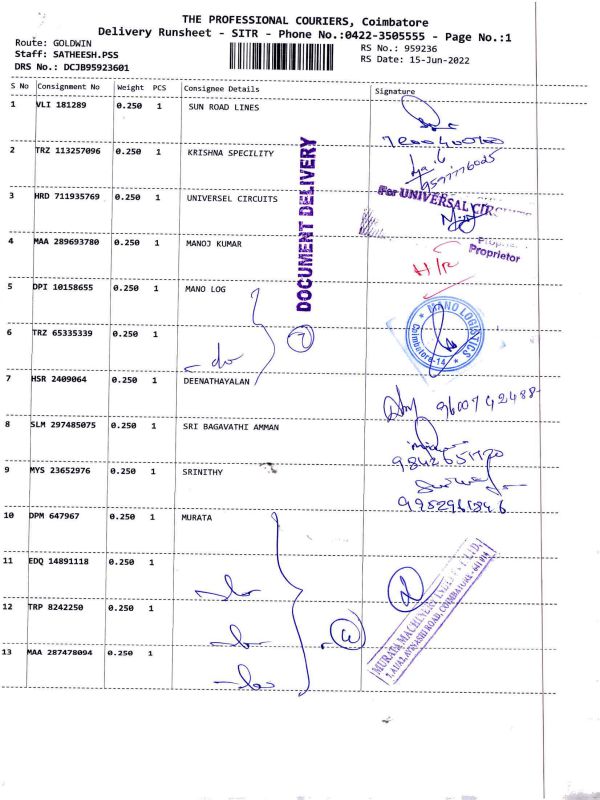 THE PROFESSIONAL COURIERS, Coimbatore
Delivery Runsheet - SITR - Phone No.:0422-3505555 - Page No.:1
Route: GOLDWIN
RS No.: 959236
Staff: SATHEESH.PSS
RS Date: 15-Jun-2022
DRS No.: DCJB95923601
S No Consignment No Weight PCS Consignee Details Signature
1 VLI 181289 0.250 1 SUN ROAD LINES
2 TRZ 113257096 0.250 1 KRISHNA SPECILITY
3 HRD 711935769 0.250 1 UNIVERSEL CIRCUITS
For UNIVERSAL CIRC
4 MAA 289693780 0.250 1 MANOJ KUMAR
Proprietor
H/R
DOCUMENT DELIVERY
5 DPI 10158655 0.250 1 MANO LOG
MANO LOGISTICS
Coimbatore-14
6 TRZ 65335339 0.250 1
- do
7 HSR 2409064 0.250 1 DEENATHAYALAN
9600742488
8 SLM 297485075 0.250 1 SRI BAGAVATHI AMMAN
9842651720
9 MYS 23652976 0.250 1 SRINITHY
10 DPM 647967 0.250 1 MURATA
11 EDQ 14891118 0.250 1
12 TRP 8242250 0.250 1
13 MAA 287478094 0.250 1